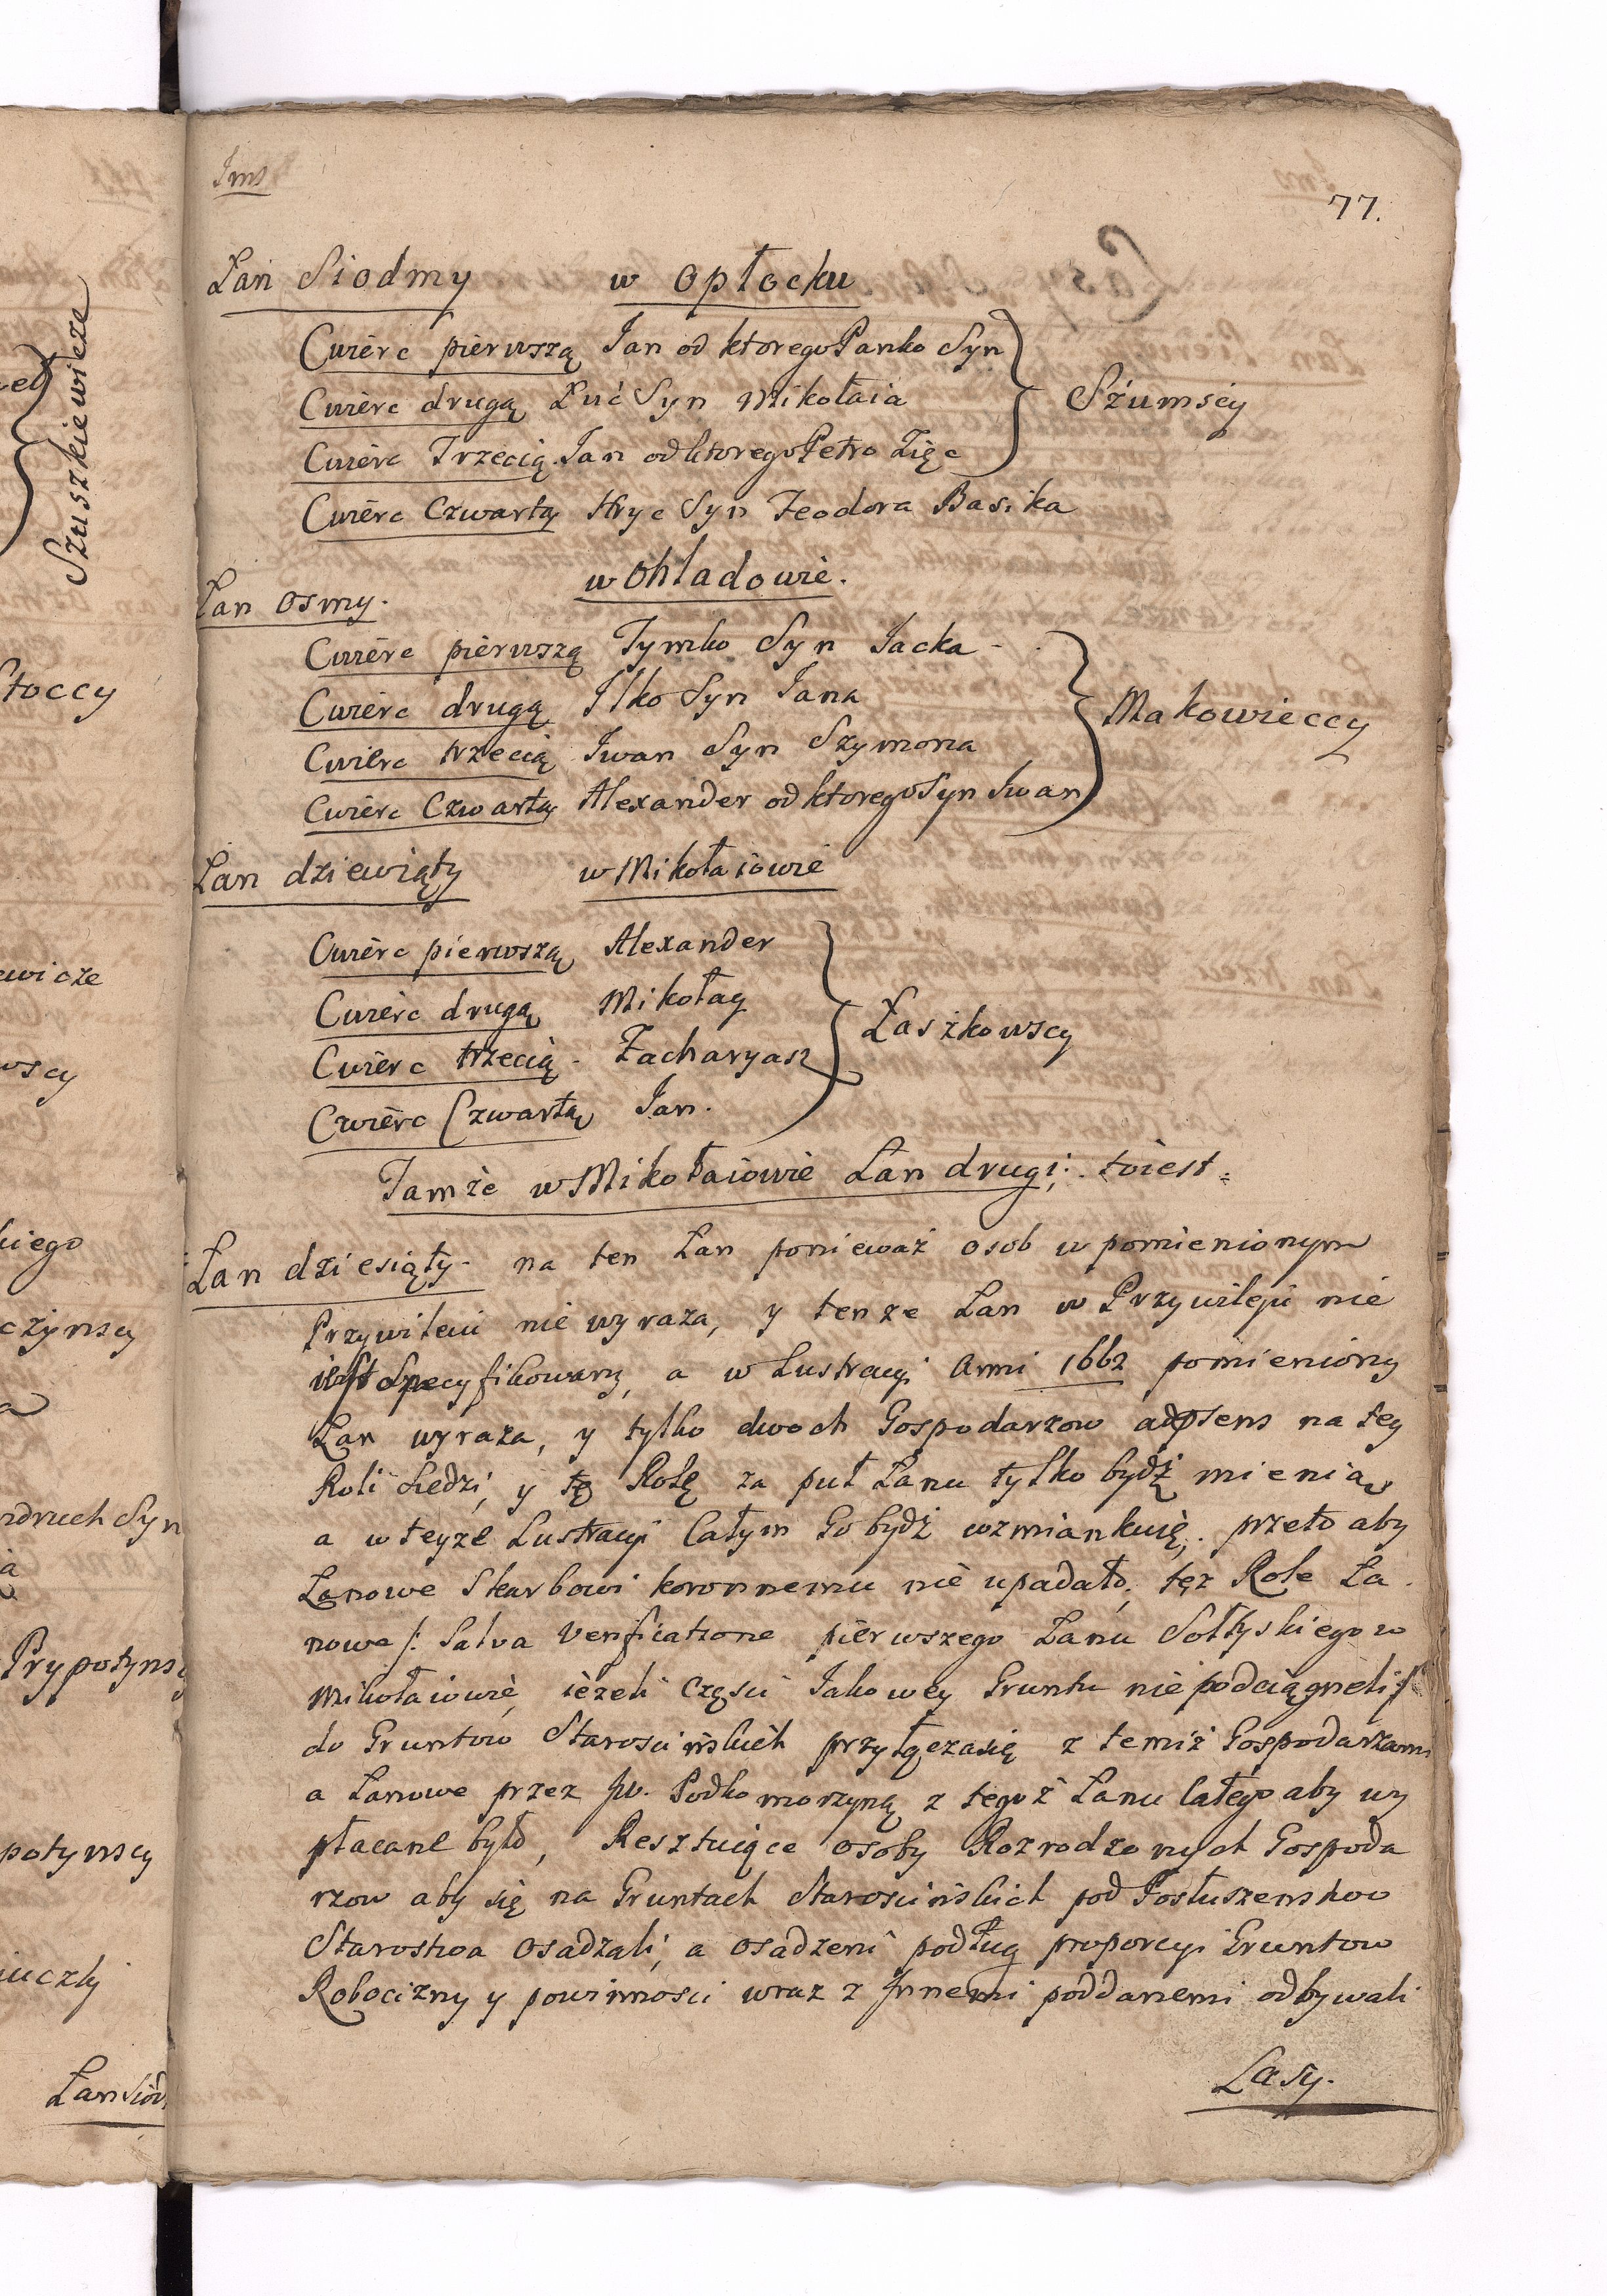 Ims
77.
Łan Siodmy w Opłocku
Cwierc pierwszą Jan od ktorego Panko Syn
Cwierc drugą Łuć Syn Mikołaia
Cwierc Trzecią Jan od ktorego Petro Zięc
Szumscy
Cwierc Czwartą Hryc Syn Teodora Basika
w Ohladowie.
Łan osmy.
Cwierc pierwszą Tymko Syn Jacka
Cwierc drugą Ilko Syn Jana
Cwierc trzecią Iwan Syn Szymona
Cwierc Czwartą Alexander od ktorego Syn Iwan
Makowieccy
Łan dziewiąty w Mikołaiowie
Cwierc pierwszą Alexander
Cwierc drugą Mikołay
Cwierc trzecią Zacharyasz
Cwierc Czwartą Jan.
Łaszkowscy
Tamże w Mikołaiowie Łan drugi; toiest
Łan dziesiąty na ten Łan ponieważ osob w pomienionym
Przywileiu nie wyraza, y tenze Łan w Przywileju nie
iest Specyfikowany, a w Lustracyi Anni 1662 pomieniony
Łan wyraza, y tylko dwoch Gospodarzow adpsens na tey
Roli siedzi, y tę Rolę za puł Łanu tylko bydź mienią
a w teyze Lustracyi Całym Go bydź wzmiankuię; przeto aby
Łanowe Skarbowi koronnemu nie upadało, tęz Role Ła
nowe /: Salva Verificatione pierwszego Łanu Sołtyskiego w
Mikołaiowie, ieżeli częsci Jakowey Gruntu nie podciągneli :/
do Gruntow Staroscińskich przyłączasię z temiż Gospodarzami
a Łanowe przez Jw. Podkomorzyną z tegoż Łanu Całego aby wy
płacane było, Resztuiące osoby Rozrodzonych Gospoda
rzow aby się na Gruntach Staroscińskich pod Posłuszenstwo
Starostwa Osadzali, a osadzeni podług proporcyi Gruntow
Robocizny y powinnosci wraz z Innemi poddanemi odbywali
Lasy.
Szuszkiewicze